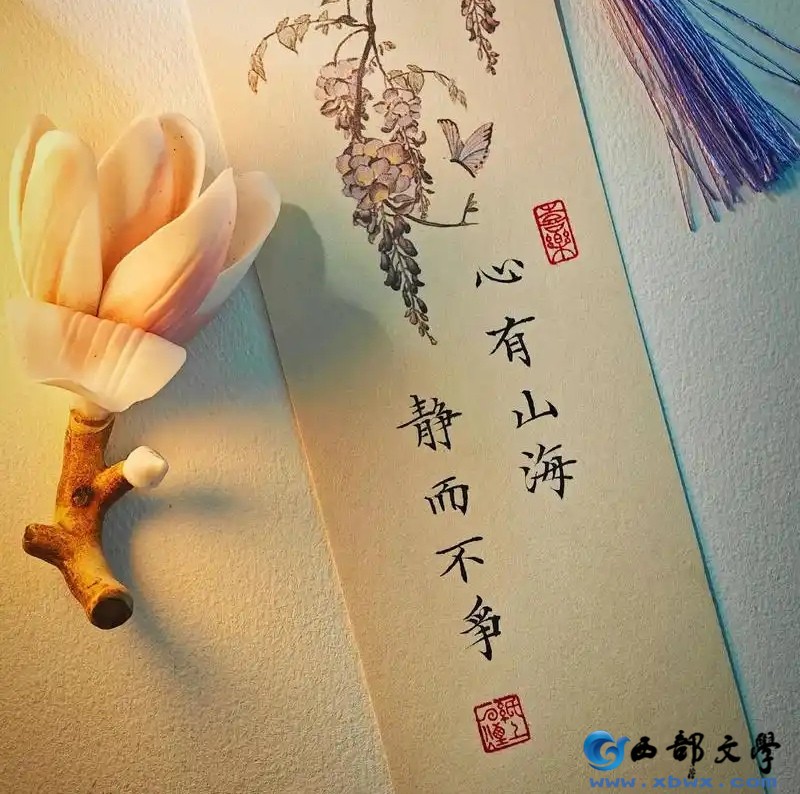 喜樂
心有山海
静而不爭
西部文學
www.xbwx.com